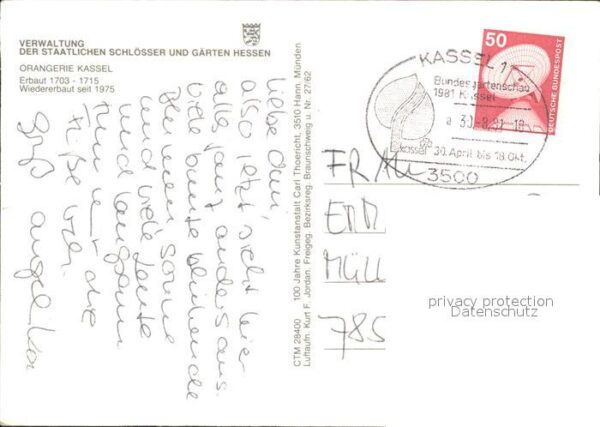 VERWALTUNG
DER STAATLICHEN SCHLÖSSER UND GÄRTEN HESSEN
ORANGERIE KASSEL
Erbaut 1703 - 1715
Wiedererbaut seit 1975
liebe
also jetzt sieht hier
alles ganz anders aus.
viele bunte blühende
Blumen, Sonne
und viele Leute
und langsam
tun mir die
Füße weh.
Gruß angelika
CTM 28400 100 Jahre Kunstanstalt Carl Thoericht, 3510 Hann. Münden
Luftaufn. Kurt F. Jordan. Freigeg. Bezirksreg. Braunschweig u. Nr. 27/62
50
DEUTSCHE BUNDESPOST
KASSEL 1
Bundesgartenschau
1981 Kassel
30.-8.81-18
kassel
30. April bis 18. Okt.
3500
FRAU
MÜLL
785
privacy protection
Datenschutz